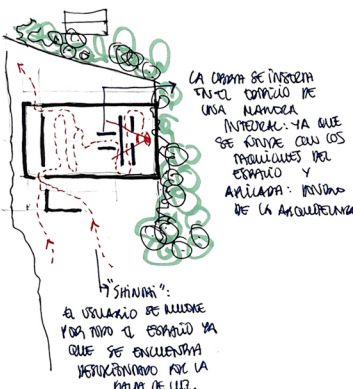 LA OBRA SE INSERTA
EN EL ESPACIO DE
UNA MANERA
INTEGRAL: YA QUE
SE FUNDE CON LOS
TABIQUES DEL
ESPACIO Y
DE LA ARQUITECTURA
"SHINTAI":
EL USUARIO SE MUEVE
POR TODO EL ESPACIO YA
QUE SE ENCUENTRA
POR LA
FALTA DE LUZ.